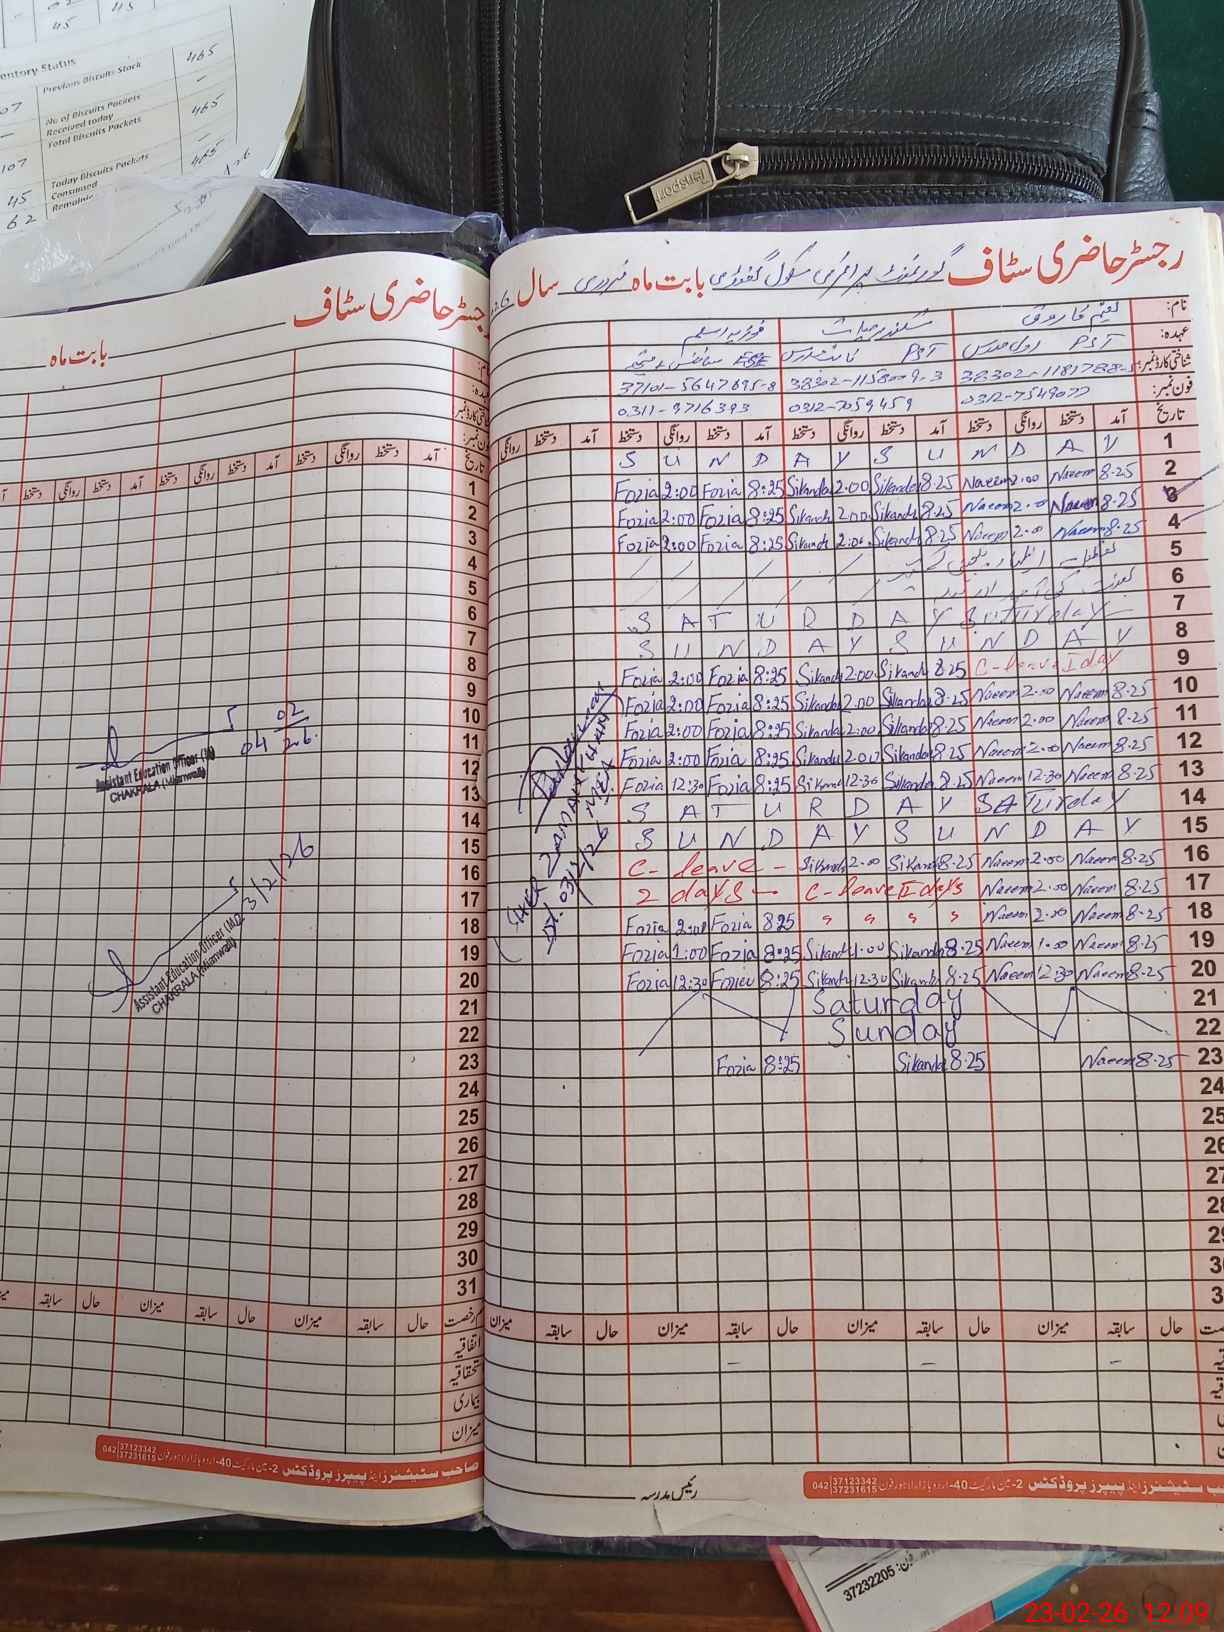 45 45
entory Status
Previous Biscuits Stock 465
07 No of Biscuits Packets Received today –
– Total Biscuits Packets 465
107 Today Biscuits Packets Consumed –
45 Remaine 465
62
Transport
رجسٹر حاضری سٹاف
بابت ماہ
آمد دستخط روانگی دستخط آمد دستخط روانگی دستخط
تاریخ
1
2
3
4
5
6
7
8
9
10
11
12
13
14
15
16
17
18
19
20
21
22
23
24
25
26
27
28
29
30
31
04 02/26
Assistant Education Officer (M)
CHAKRALA (Mianwali)
3/2/26
Assistant Education Officer (M)
CHAKRALA (Mianwali)
حال سابقہ میزان حال سابقہ میزان حال سابقہ
اتفاقیہ
استحقاقیہ
بیماری
میزان
صاحب سٹیشنرز اینڈ پیپرز پروڈکٹس 2-مین مارکیٹ 40-اردو بازار لاہور فون 042 37123342 37231615
رجسٹر حاضری سٹاف گورنمنٹ پرائمری سکول بابت ماہ فروری سال
نام: نعیم فاروق سکندر حیات فوزیہ اسلم
عہدہ: PST PST ESE
شناختی کارڈ نمبر: 38302-1181788-5 38302-1158009-3 37101-5647695-8
فون نمبر: 0312-7549077 0312-7059459 0311-9716393
تاریخ آمد دستخط روانگی دستخط آمد دستخط روانگی دستخط آمد دستخط روانگی دستخط آمد دستخط روانگی
S U N D A Y S U N D A Y 1
Fozia 2:00 Fozia 8:25 Sikandar 2.00 Sikandar 8.25 Naeem 2.00 Naeem 8.25 2
Fozia 2:00 Fozia 8:25 Sikandar 2.00 Sikandar 8.25 Naeem 2.00 Naeem 8.25 3
Fozia 2:00 Fozia 8:25 Sikandar 2.00 Sikandar 8.25 Naeem 2.00 Naeem 8.25 4
5
6
S A T U R D A Y Saturday 7
S U N D A Y S U N D A Y 8
Fozia 2:00 Fozia 8:25 Sikandar 2.00 Sikandar 8.25 C-leave I day 9
Fozia 2:00 Fozia 8:25 Sikandar 2.00 Sikandar 8.25 Naeem 2.00 Naeem 8.25 10
Fozia 2:00 Fozia 8:25 Sikandar 2.00 Sikandar 8.25 Naeem 2.00 Naeem 8.25 11
Fozia 2:00 Fozia 8:25 Sikandar 2.00 Sikandar 8.25 Naeem 2.00 Naeem 8.25 12
Fozia 12:30 Fozia 8:25 Sikandar 12.30 Sikandar 8.25 Naeem 12.30 Naeem 8.25 13
S A T U R D A Y SATurday 14
S U N D A Y S U N D A Y 15
C- leave – Sikandar 2.00 Sikandar 8.25 Naeem 2.00 Naeem 8.25 16
2 days – C-leave II days Naeem 2.00 Naeem 8.25 17
Fozia 2:00 Fozia 8:25 " " " " Naeem 2.00 Naeem 8.25 18
Fozia 1:00 Fozia 8:25 Sikandar 1.00 Sikandar 8.25 Naeem 1.00 Naeem 8.25 19
Fozia 12:30 Fozia 8:25 Sikandar 12.30 Sikandar 8.25 Naeem 12.30 Naeem 8.25 20
Saturday 21
Sunday 22
Fozia 8:25 Sikandar 8.25 Naeem 8.25 23
24
25
26
27
28
29
30
MEA
Dt: 03/2/26
حال سابقہ میزان حال سابقہ میزان حال سابقہ میزان حال سابقہ میزان
– – –
رئیس مدرسہ
صاحب سٹیشنرز اینڈ پیپرز پروڈکٹس 2-مین مارکیٹ 40-اردو بازار لاہور فون 042 37123342 37231615
فون: 37232205
23-02-26 12:09